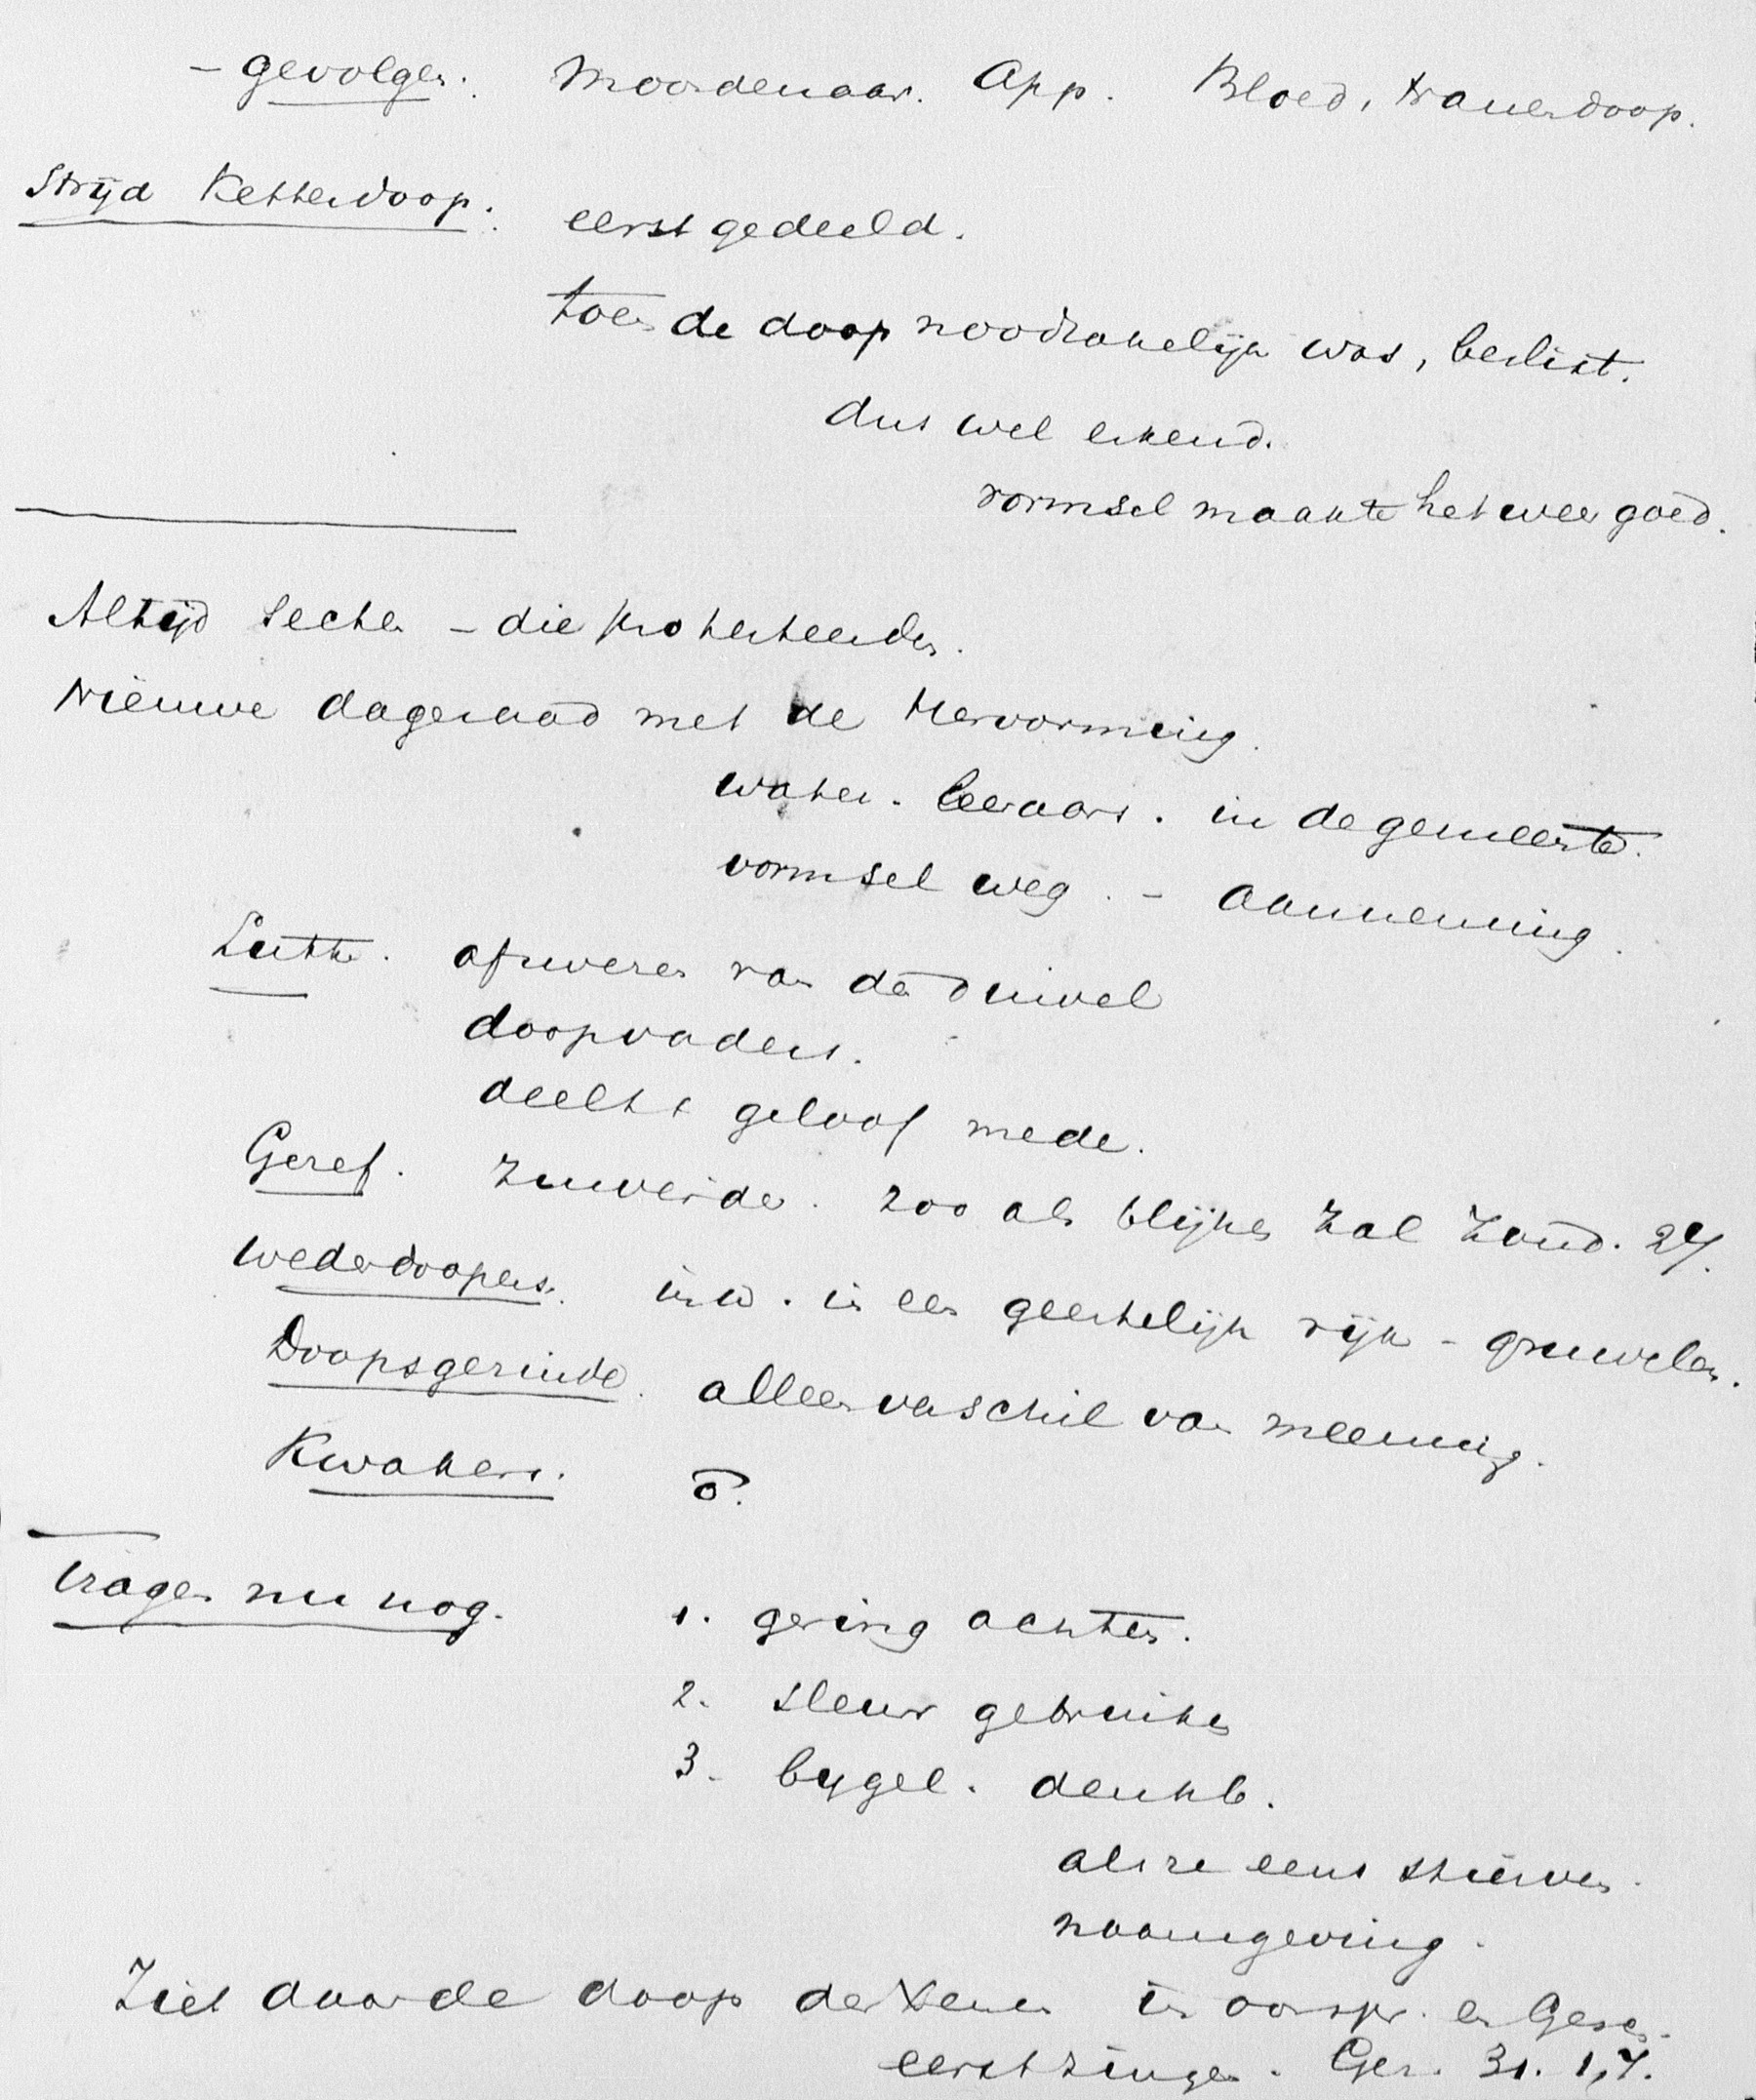 - gevolgen. Moordenaar. App. Bloed, tranendoop.
Strijd Ketterdoop. eerst gedeeld.
toen de doop noodzakelijk was, beslist.
dus wel erkend.
vormsel maakte het weer goed.
Altijd secten - die protesteerden.
Nieuwe dageraad met de Hervorming.
water. leeraars. in de gemeente.
vormsel weg. - aanneming.
Luth. afzweren van den duivel
doopvaders.
deelt 't geloof mede.
Geref. Zuiverder. zoo als blijken zal Zond. 27.
wederdoopers. inw. in een geestelijk rijk - gruwelen.
Doopsgezinde. alleen verschil van meening.
Kwakers. 0.
Vragen nu nog. 1. gering achten.
2. sleur gebruiken
3. bijgel. denkb.
als ze eens stierven.
naamgeving.
Ziet daar de doop der in oorspr. en Gesch.
eerst zingen. Gez. 31. 1,7.